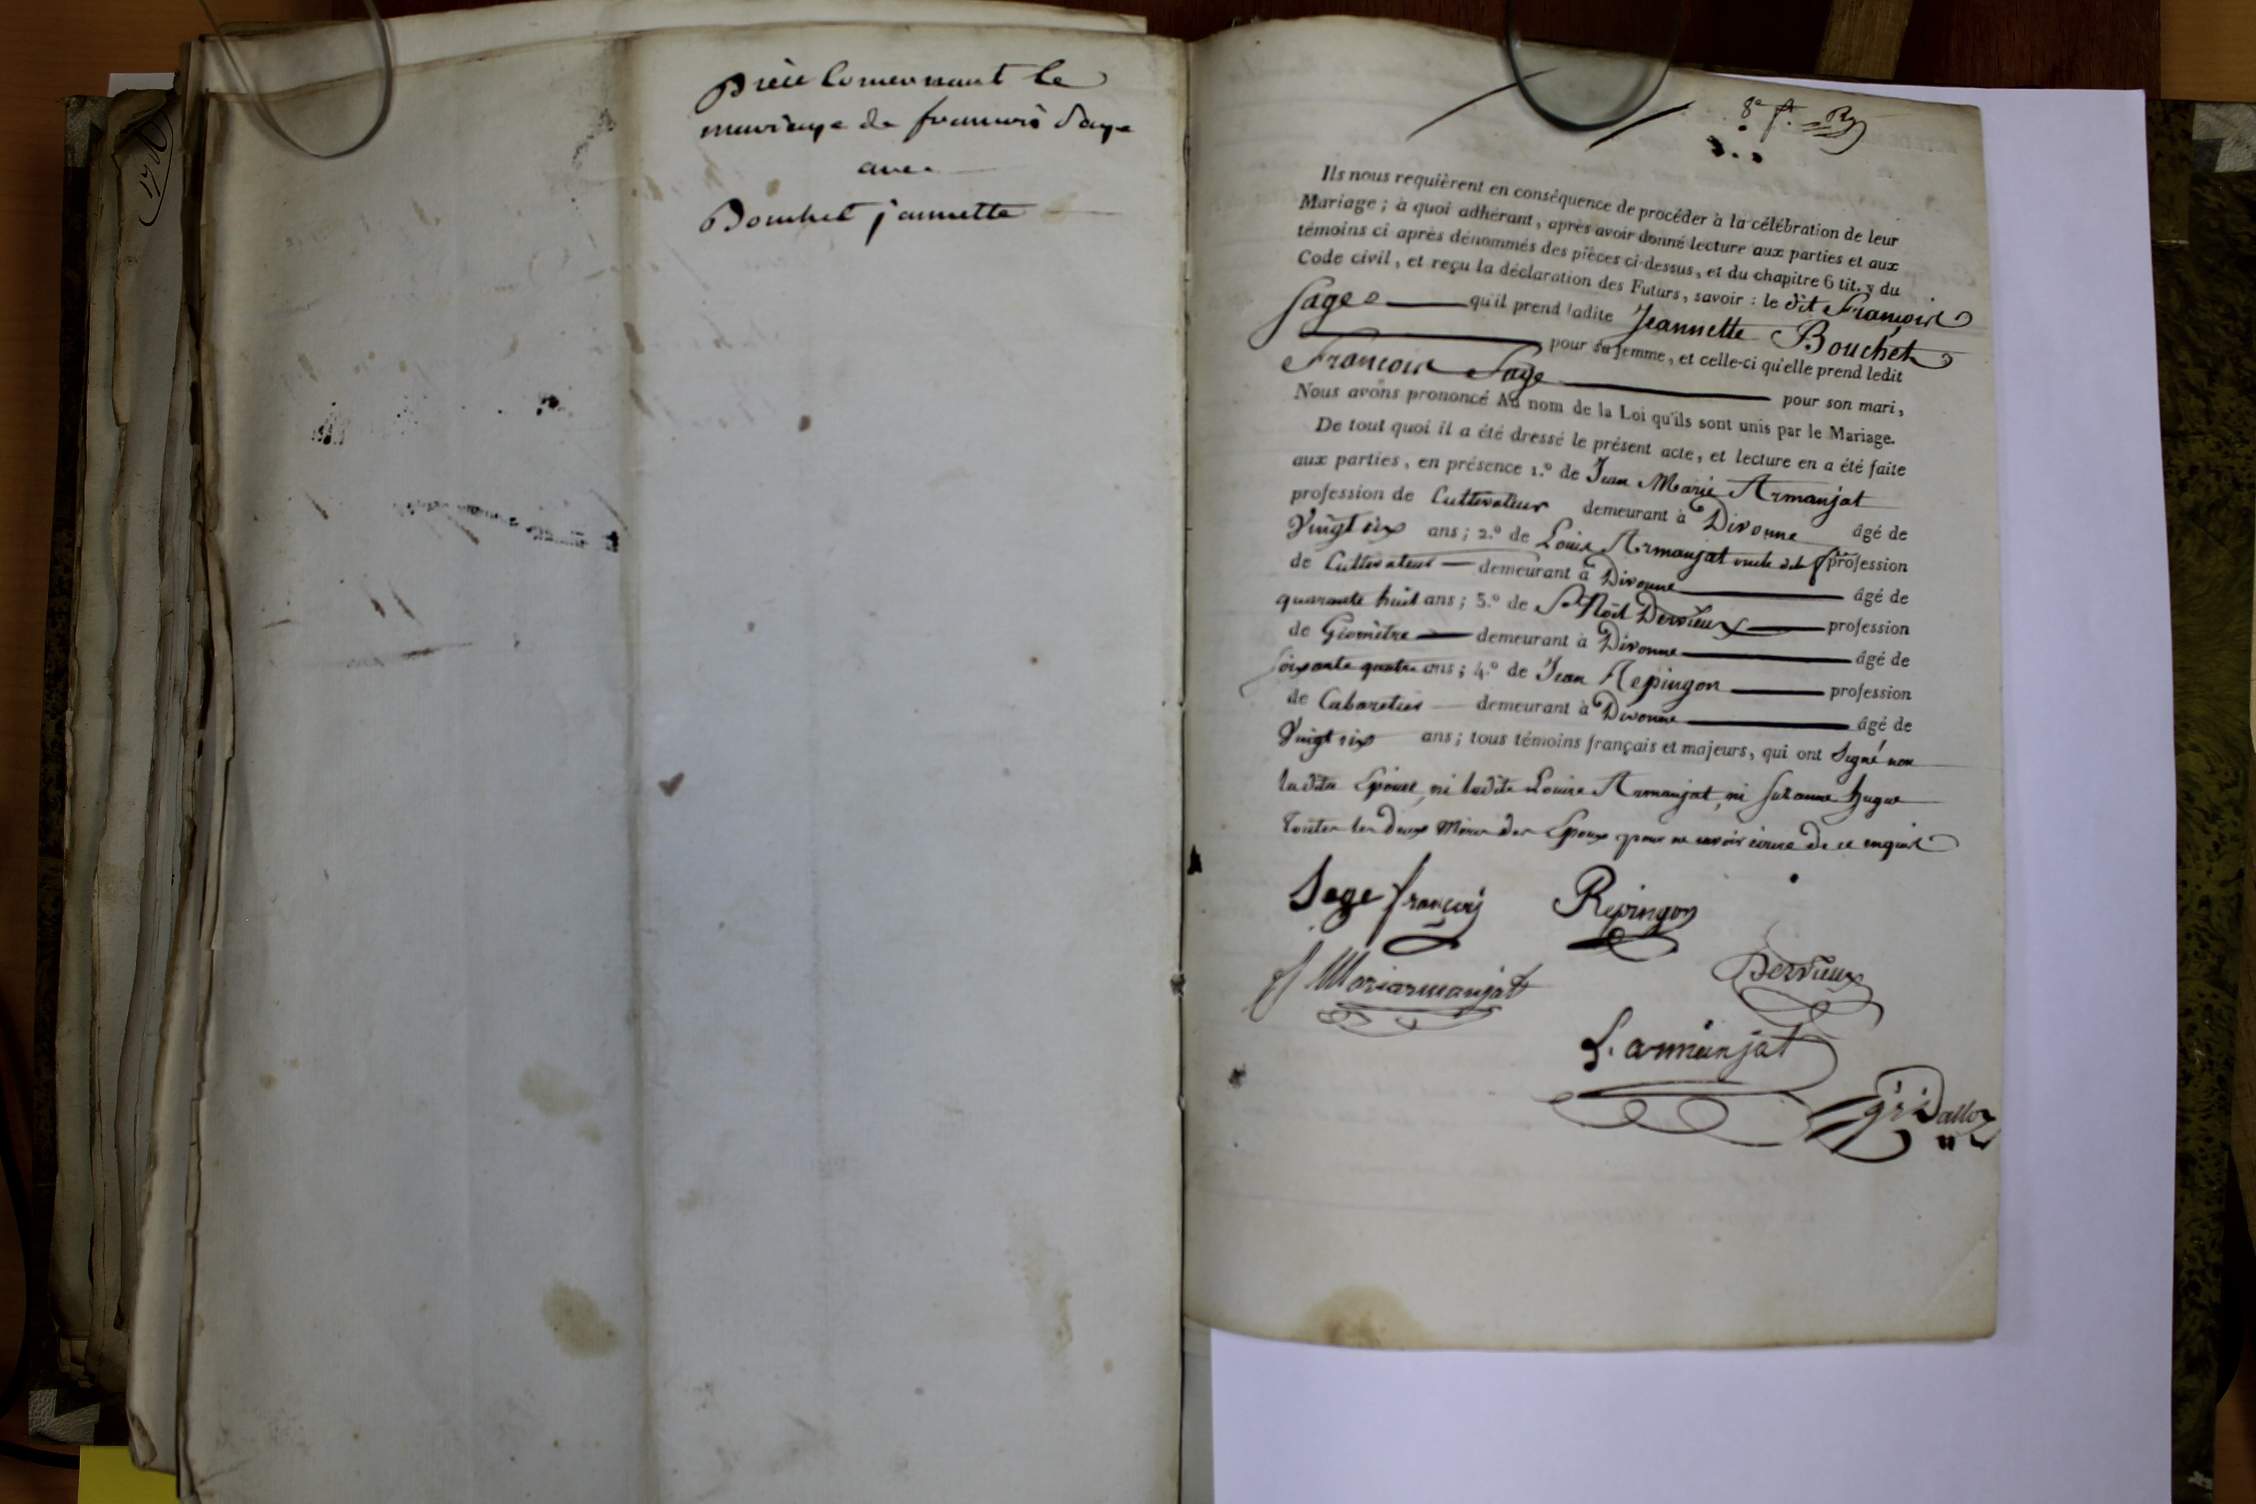 Pièce Concernant le
mariage de francois Sage
avec
Bouchet jannette
8e f.
Ils nous requièrent en conséquence de procéder à la célébration de leur
Mariage ; à quoi adhérant, après avoir donné lecture aux parties et aux
témoins ci après dénommés des pièces ci-dessus, et du chapitre 6 tit. v du
Code civil, et reçu la déclaration des Futurs, savoir : le dit François
Sage qu'il prend ladite Jeannette Bouchet
pour sa femme, et celle-ci qu'elle prend ledit
François Sage pour son mari,
Nous avons prononcé Au nom de la Loi qu'ils sont unis par le Mariage.
De tout quoi il a été dressé le présent acte, et lecture en a été faite
aux parties, en présence 1.º de Jean Marie Armanjat
profession de Cultivateur demeurant à Divonne âgé de
Vingt six ans ; 2.º de Louis Armanjat profession
de Cultivateur demeurant à Divonne âgé de
quarante huit ans ; 3.º de Sr Noël Dervieux profession
de Géomètre demeurant à Divonne âgé de
soixante quatre ans ; 4.º de Jean Repingon profession
de Cabaretier demeurant à Divonne âgé de
Vingt six ans ; tous témoins français et majeurs, qui ont Signé non
ladite Epouse, ni ladite Louise Armanjat, ni Suzanne hugue
toutes les deux Mères des Epoux pour ne savoir écrire de ce enquis
Sage françois Repingon
J Mariarmanjat Dervieux
L. armanjat
Dalloz